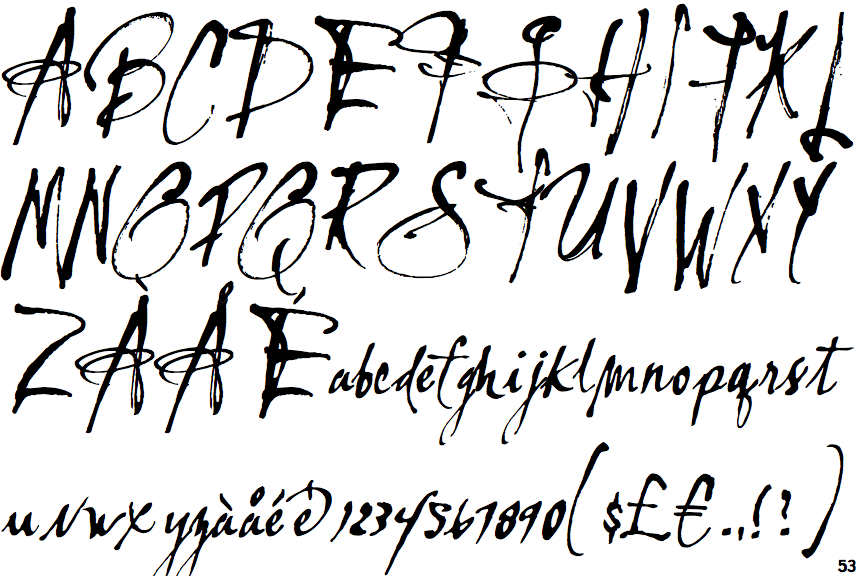 ABCDEFGHIJKL
MNOPQRSTUVWXY
ZÀÅÉabcdefghijklmnopqrst
uvwxyzàåéê1234567890($£€.,!?)
53